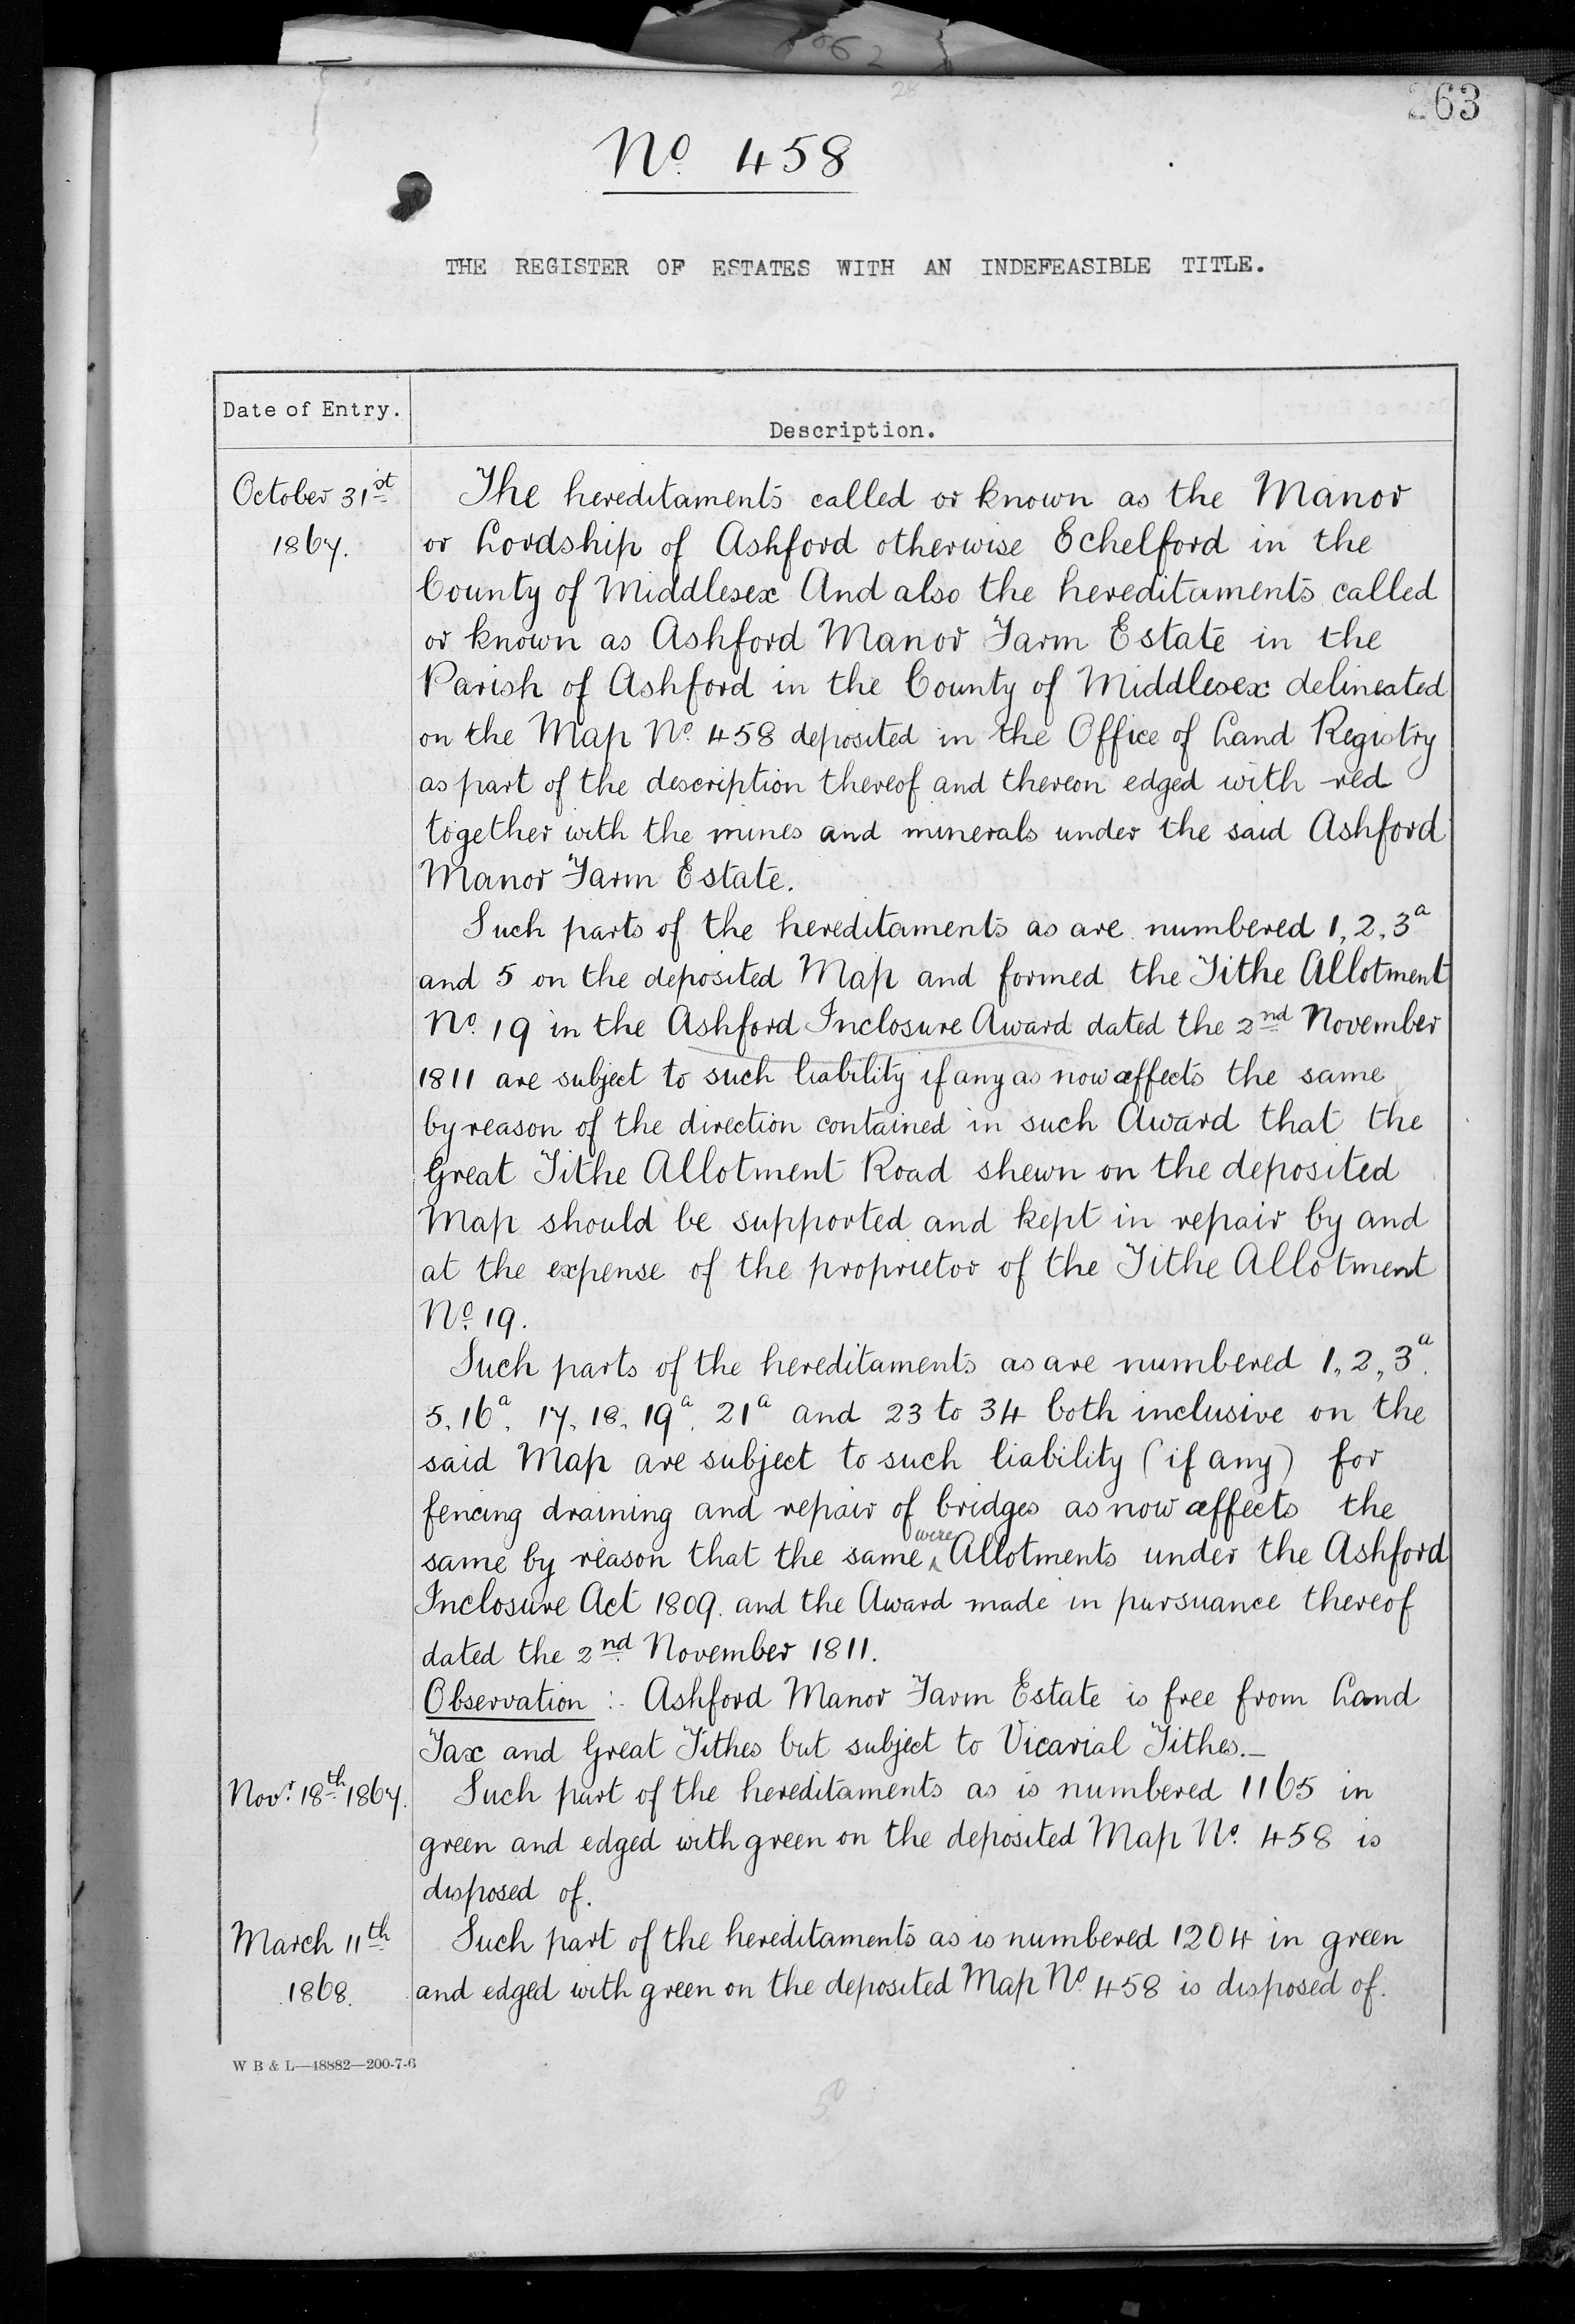 263
No. 458
THE REGISTER OF ESTATES WITH AN INDEFEASIBLE TITLE.
Date of Entry.
Description.
October 31st
1867.
The hereditaments called or known as the Manor
or Lordship of Ashford otherwise Echelford in the
County of Middlesex And also the hereditaments called
or known as Ashford Manor Farm Estate in the
Parish of Ashford in the County of Middlesex delineated
on the Map No. 458 deposited in the Office of Land Registry
as part of the description thereof and thereon edged with red
together with the mines and minerals under the said Ashford
Manor Farm Estate.
Such parts of the hereditaments as are numbered 1, 2, 3a
and 5 on the deposited Map and formed the Tithe Allotment
No. 19 in the Ashford Inclosure Award dated the 2nd November
1811 are subject to such liability if any as now affects the same
by reason of the direction contained in such Award that the
Great Tithe Allotment Road shewn on the deposited
Map should be supported and kept in repair by and
at the expense of the proprietor of the Tithe Allotment
No. 19.
Such parts of the hereditaments as are numbered 1, 2, 3a,
5, 16a, 17, 18, 19a, 21a and 23 to 34 both inclusive on the
said Map are subject to such liability (if any) for
fencing draining and repair of bridges as now affects the
same by reason that the same were Allotments under the Ashford
Inclosure Act 1809. and the Award made in pursuance thereof
dated the 2nd November 1811.
Observation :- Ashford Manor Farm Estate is free from Land
Tax and Great Tithes but subject to Vicarial Tithes.-
Novr. 18th 1867.
Such part of the hereditaments as is numbered 1165 in
green and edged with green on the deposited Map No. 458 is
disposed of.
March 11th
1868.
Such part of the hereditaments as is numbered 1204 in green
and edged with green on the deposited Map No. 458 is disposed of.
W B & L—48882—200-7-6
50